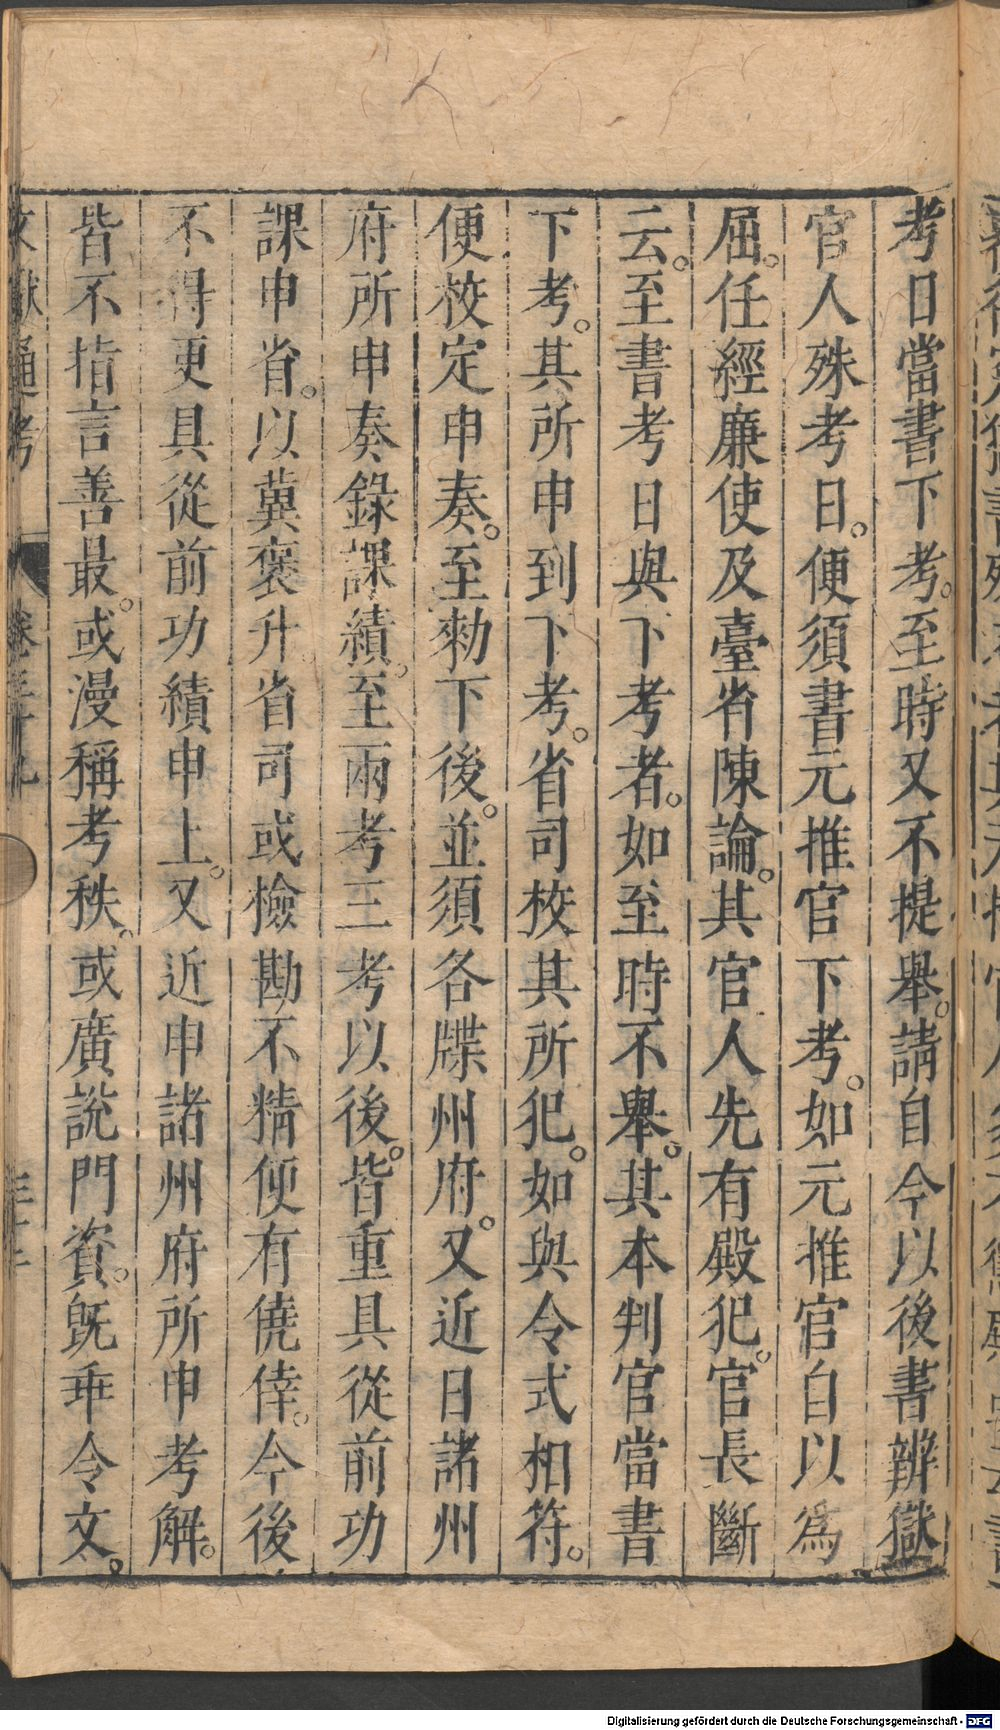 考日當書下考。至時又不提舉。請自今以後書辨獄
官人殊考日。便須書元推官下考。如元推官自以爲
屈。任經廉使及臺省陳論。其官人先有殿犯。官長斷
云。至書考日與下考者。如至時不舉。其本判官當書
下考。其所申到下考。省司校其所犯。如與令式相符。
便校定申奏。至勑下後。並須各牒州府。又近日諸州
府所申奏錄課績。至兩考三考以後。皆重具從前功
課申省。以冀褒升。省司或檢勘不精。便有僥倖。今後
不得更具從前功績申上。又近申諸州府所申考解。
皆不指言善最。或漫稱考秩。或廣說門資。旣乖令文。
文獻通考
卷三十九
Digitalisierung gefördert durch die Deutsche Forschungsgemeinschaft - DFG